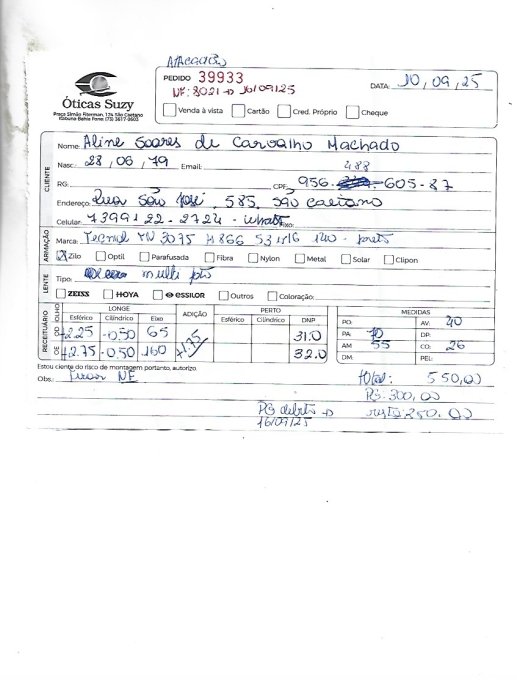 PEDIDO 39933
NF: 8021 → 10/09/25
DATA: 10, 09, 25
Óticas Suzy
Praça Simão Fiterman, 174 São Caetano
Itabuna Bahia Fone: (73) 3617-0603
Venda à vista Cartão Cred. Próprio Cheque
CLIENTE
Nome: Aline Soares de Carvalho Machado
Nasc.: 28, 06, 79 Email:
RG: CPF: 956. 488 - 605-87
Endereço: Rua São José, 585, São Caetano
Celular: 73991 22-2724 - whats Fixo:
ARMAÇÃO
Marca: Tecnol TN 3075 H866 53 16 140 - preto
Zilo Optil Parafusada Fibra Nylon Metal Solar Clipon
LENTE
Tipo: multi
ZEISS HOYA essilor Outros Coloração:
RECEITUÁRIO
OLHO LONGE ADIÇÃO PERTO MEDIDAS
Esférico Cilíndrico Eixo Esférico Cilíndrico DNP PO: AV: 40
OD +2.25 -0.50 65 +1.75 31.0 PA: 70 DP:
OE +2.75 -0.50 160 32.0 AM 55 CO: 26
DM: PEL:
Estou ciente do risco de montagem portanto, autorizo.
Obs.: NF total: 550,00
PG: 300,00
PG debito → resta 250,00
16/09/25